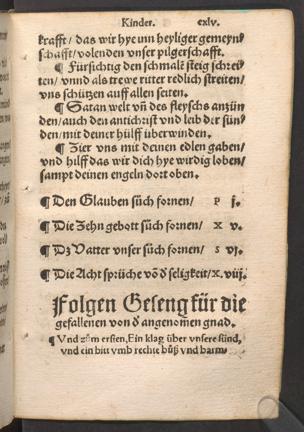 Kinder. cxlv.
krafft/ das wir hye inn heyliger gemeyn⸗
schafft/ volenden vnser pilgerschafft.
¶ Fürsichtig den schmalẽ steig schrei⸗
ten/ vnnd als trewe ritter redlich streiten/
vns schützen auff allen seiten.
¶ Satan welt vñ des fleyschs anzün
den/ auch den antichrist vnd leib der sün⸗
den/ mit deiner hülff überwinden.
¶ Zier vns mit deinen edlen gaben/
vnd hilff das wir dich hye wirdig loben/
sampt deinen engeln dort oben.
¶ Den Glauben sůch fornen/ P j.
¶ Die Zehn gebott sůch fornen/ X v.
¶ Dz Vatter vnser sůch fornen/ S vj.
¶ Die Acht sprüche võ d seligkeit/ X. viij.
Folgen Geseng für die
gefallenen von d angenomen gnad.
¶ Vnd zům ersten, Ein klag über vnsere sünd,
vnd ein bitt vmb rechte bůß vnd barm⸗